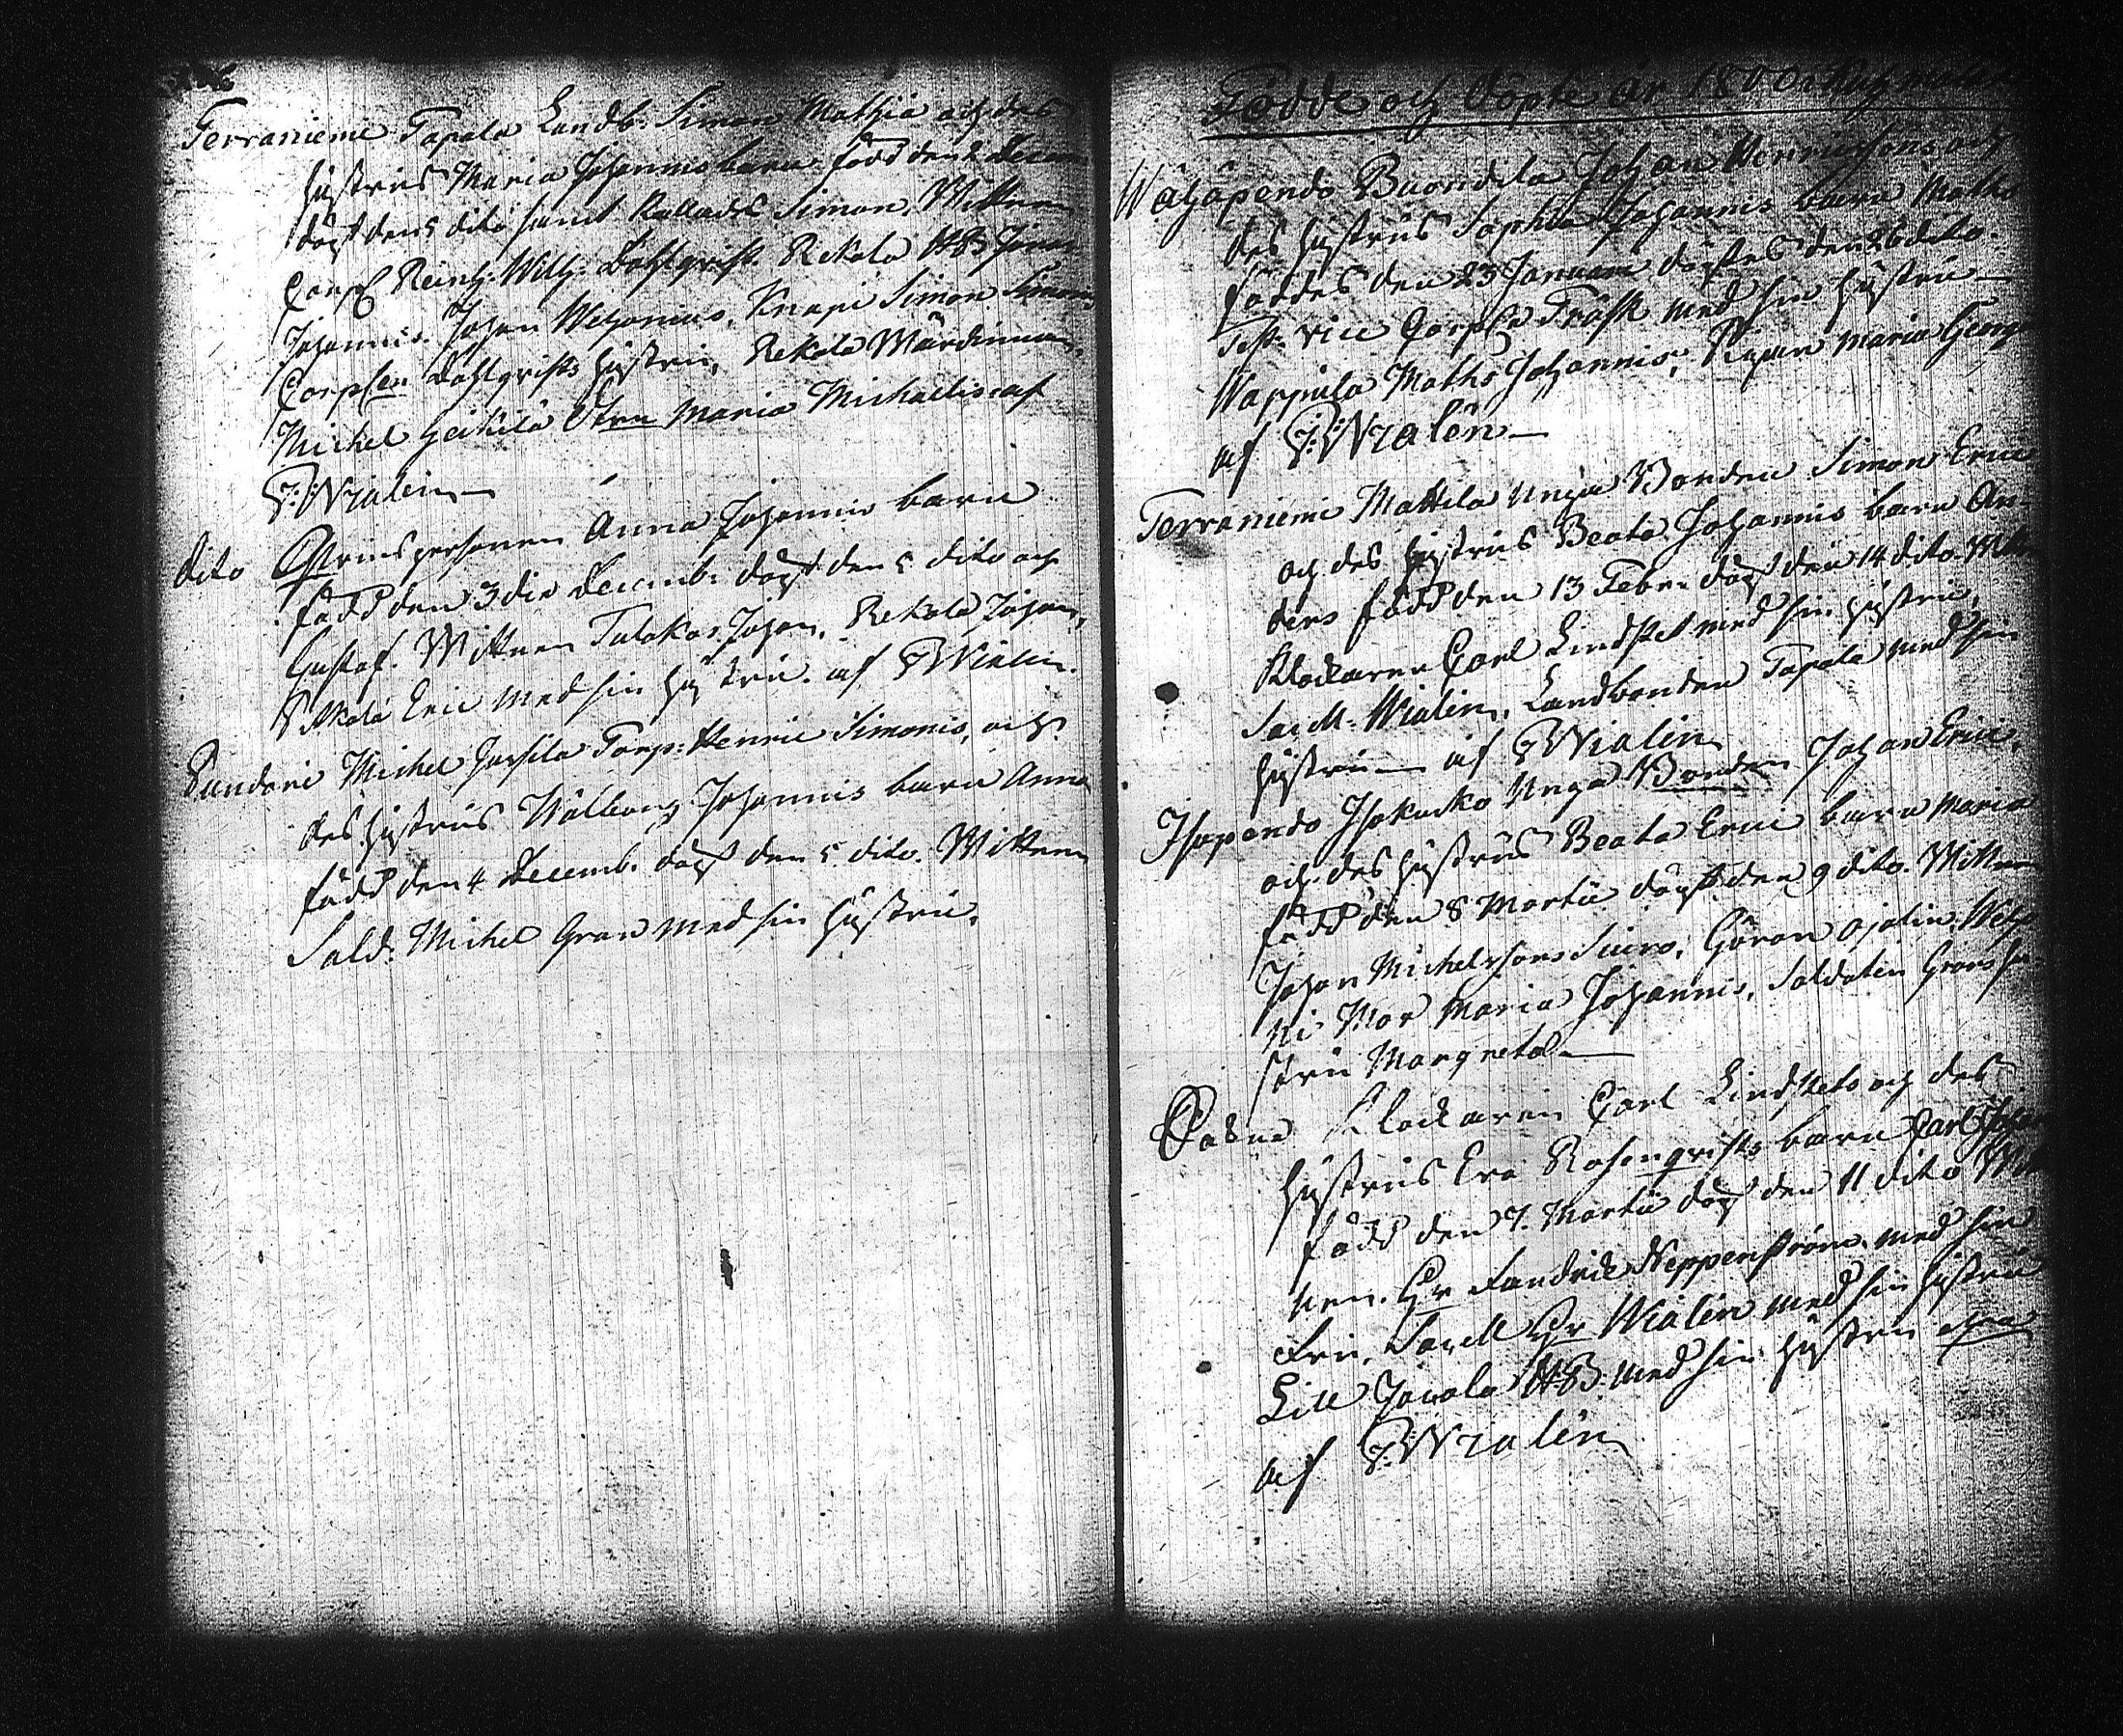 Terraniemi Tapala Landb: Simon Mathiæ och des
hustrus Maria Johannis barn född den 2 Decem
döpt den 5 dito samt kallades Simon. Wittnen
Corpl Reinh: Wilh: Dahlqvist. Rekola HB Johan
Johannis. Johan Weganius, Knapi Simon Simonis,
Corplen Dahlqvists hustru, Rekola Wärdinnan,
Michel Heikilä Dtrn Maria Michaelis af
G: Wialin
dito Qvinspersonen Anna Johannis barn
född den 3die Decemb: döpt den 5 dito och
Gustaf. Wittnen Talakas Johan, Rekola Johan,
Eric med sin hustru. af G Wialin.
Sundari Michel Jussila Torp: Henric Simonis, och
des hustrus Wålborg Johannis barn Anna
född den 4 Decemb. döpt den 5 dito. Wittnen
Sold: Michel Gran med sin hustru.
Födde och Döpte år 1800
Wähäpendo Buondila Johan Henricssons och
des hustrus Sophia Johannis barn Maths
föddes den 23 Januarii döptes den 26 dito.
Test: vice Corpln Träsk med sin hustru
Wappula Maths Johannis, Pigan Maria Georg
af G: Wialén
Terraniemi Mattila Unga Bonden Simon Erici
och des hustrus Beata Johannis barn An-
ders född den 13 Febr: döpt den 14 dito. Wittn
Klockaren Carl Lindstet med sin hustru,
Sacell: Wialin, Landbonden Tapala med sin
hustru af G Wialin
Isopendo Isokacko Unga Bonden Johan Erici,
och des hustrus Beata Erici barn Maria
född den 8 Martii döpt den 9 dito. Wittnen
Johan Michelssons Siuro, Göran Ojalin,
ni Mor Maria Johannis, Soldaten Grans hu-
stru Margreta
Klockaren Carl Lindstets och des
hustrus Eva Rosenqvists barn Carl Johan
född den 7. Martii döpt den 11 dito Witt
nen. Hr Fändrik Neppenström med sin
Fru, Sacell Hr Wialin med sin hustru
Lill Jaoala HB. med sin hustru
af G: Wialin